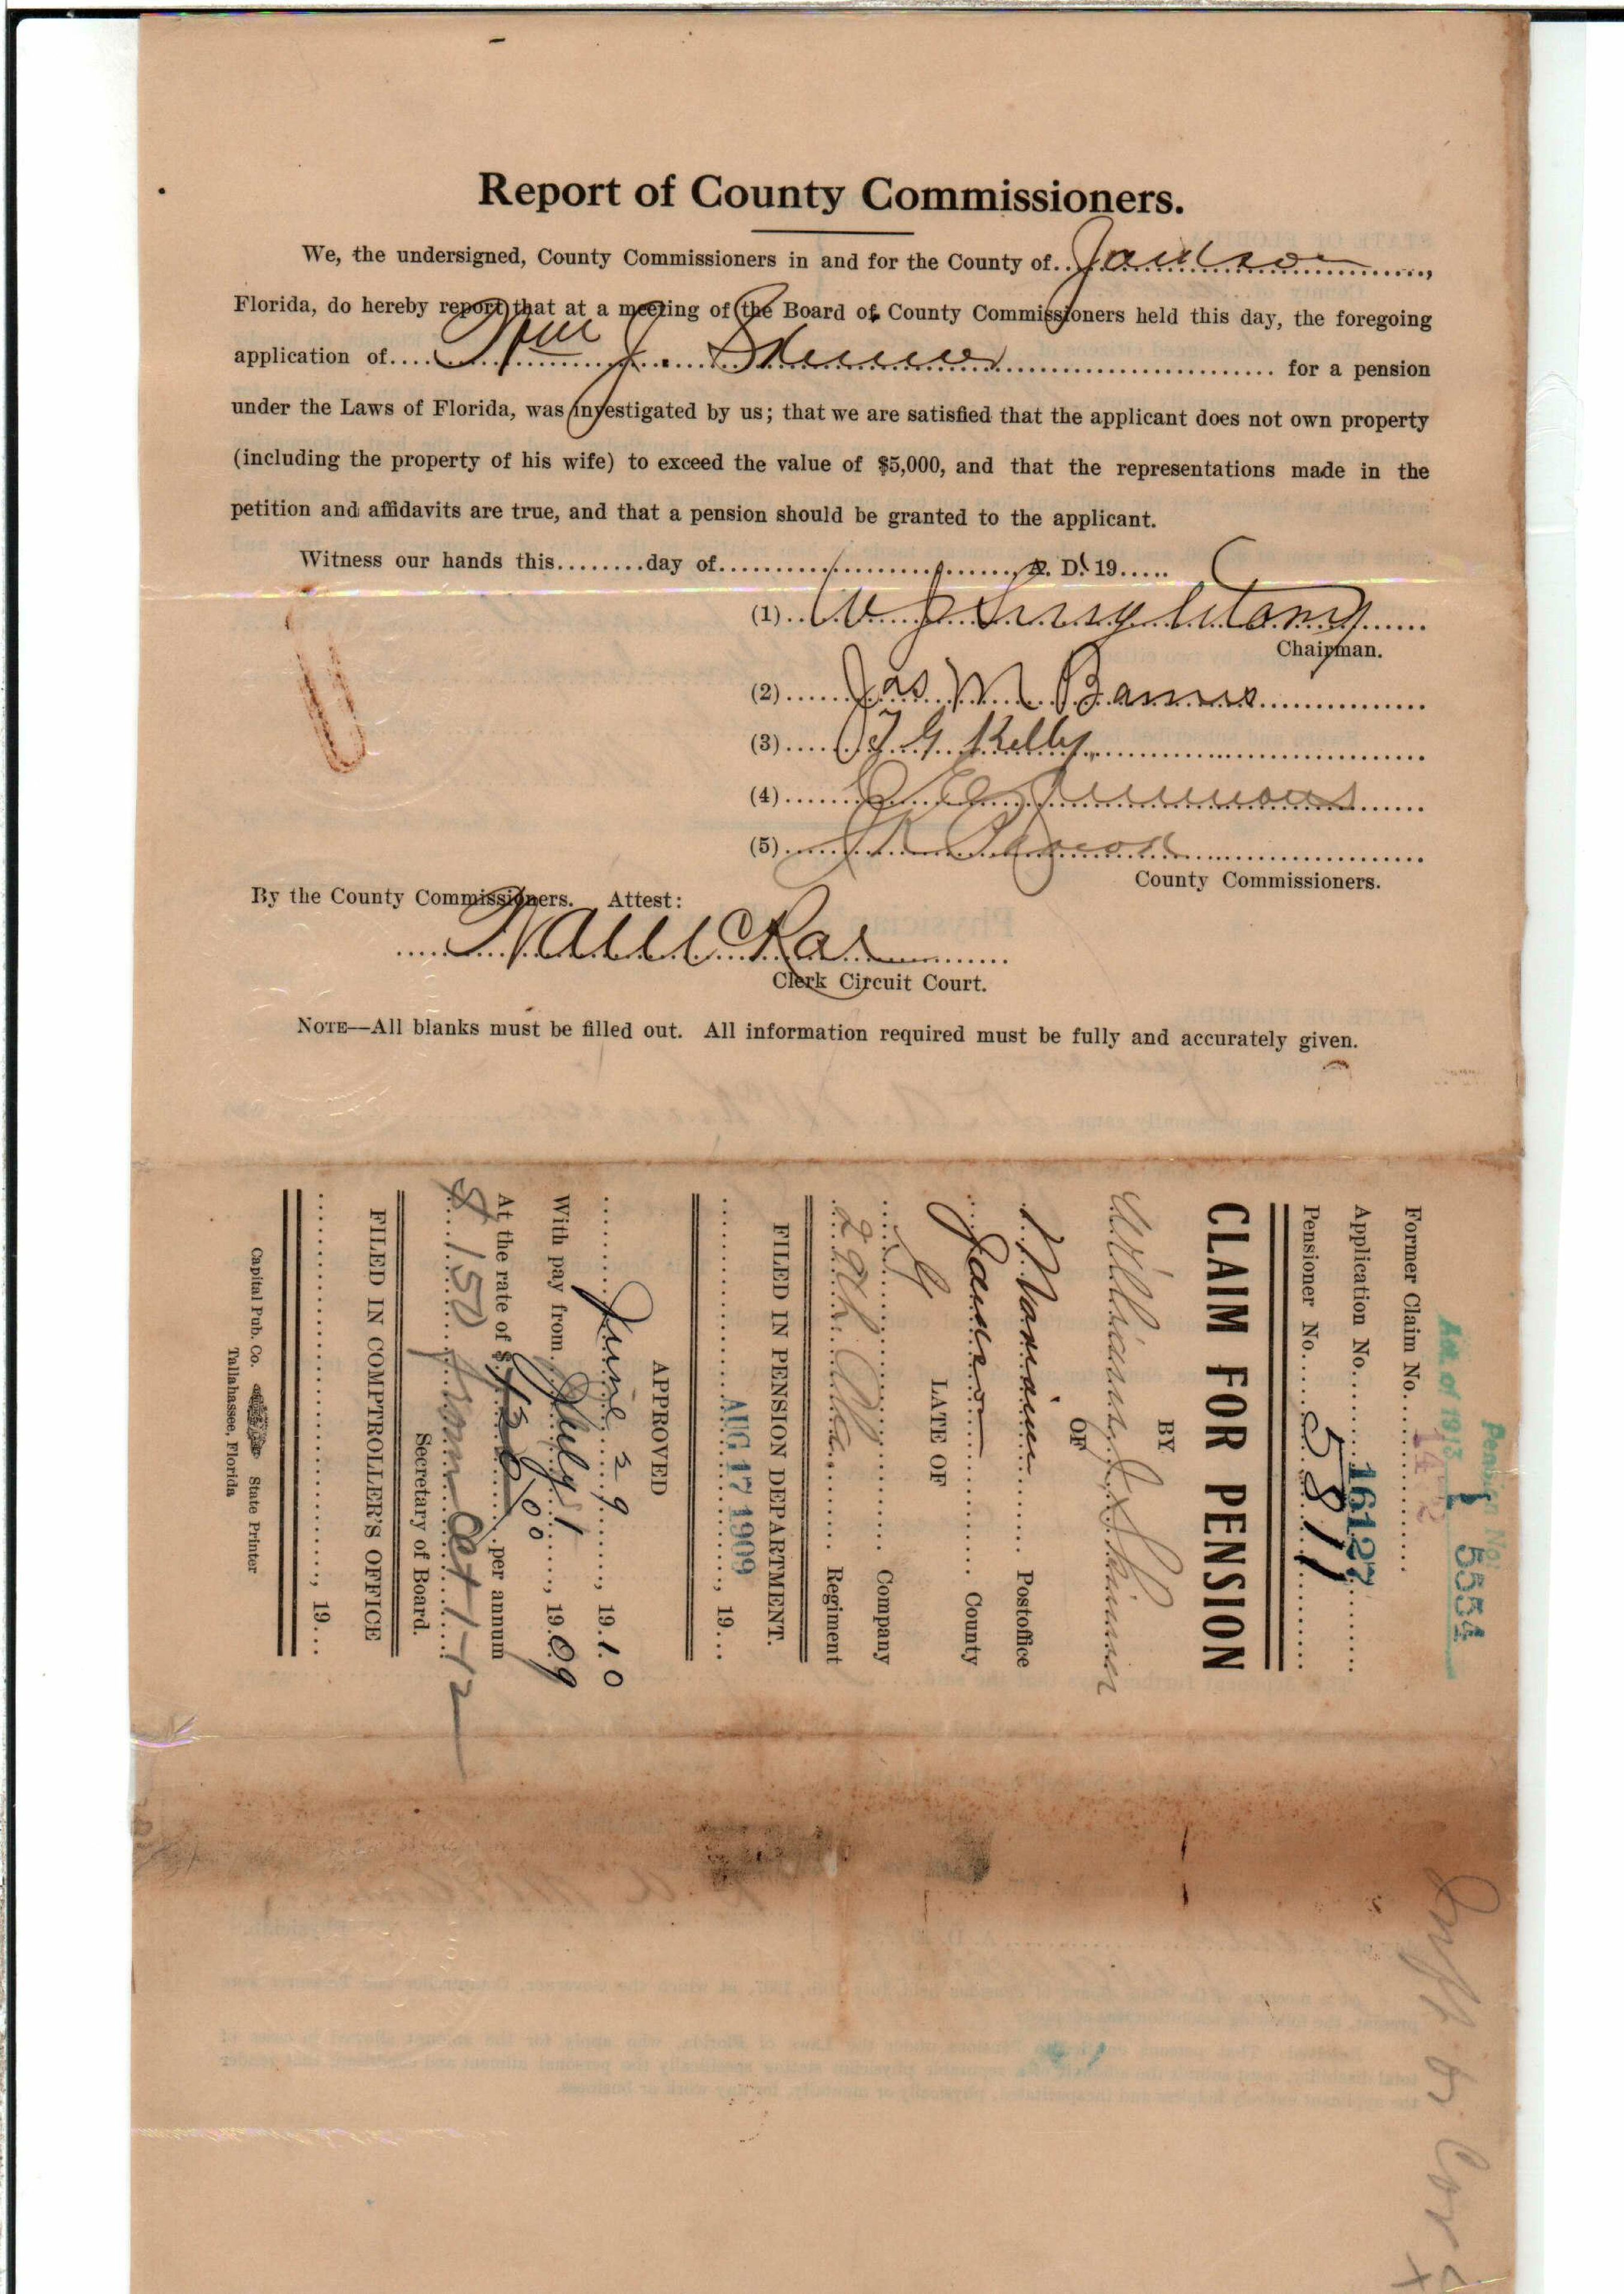 Report of County Commissioners.
We, the undersigned, County Commissioners in and for the County of....Jackson....,
Florida, do hereby report that at a meeting of the Board of County Commissioners held this day, the foregoing
application of....Wm J. Skinner.... for a pension
under the Laws of Florida, was investigated by us; that we are satisfied that the applicant does not own property
(including the property of his wife) to exceed the value of $5,000, and that the representations made in the
petition and affidavits are true, and that a pension should be granted to the applicant.
Witness our hands this........day of........................, A. D. 19.....
(1)....W J Singletary....
Chairman.
(2)....Jas M Barnes....
(3)....J G Kelly....
(4)....
(5)....
County Commissioners.
By the County Commissioners. Attest:
Clerk Circuit Court.
NOTE—All blanks must be filled out. All information required must be fully and accurately given.
Pension No.
Act of 1913 5554
Former Claim No.....
Application No....16127....
Pensioner No....5811....
CLAIM FOR PENSION
BY
William J. Skinner
OF
....Marianna.... Postoffice
....Jackson.... County
LATE OF
....G.... Company
....29th Ala.... Regiment
FILED IN PENSION DEPARTMENT.
....AUG 17 1909...., 19...
APPROVED
....June 29...., 19.10
With pay from....July 1...., 19.09
At the rate of $....00....per annum
$150 from Oct 1-12
Secretary of Board.
FILED IN COMPTROLLER'S OFFICE
...................., 19...
Capital Pub. Co. State Printer
Tallahassee, Florida